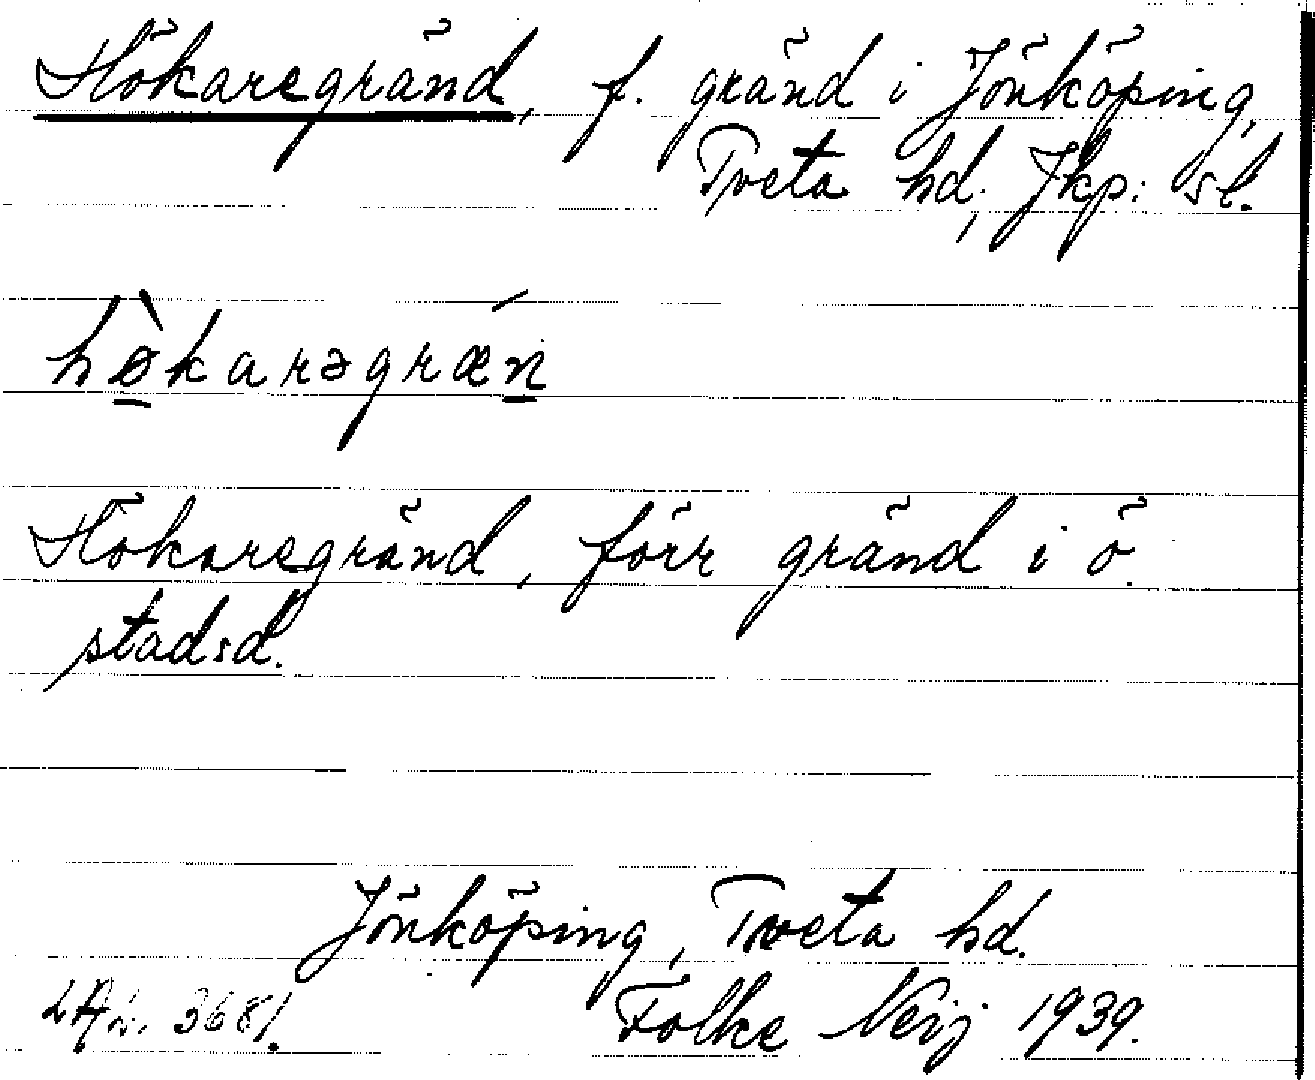 Hökaregränd, f. gränd i Jönköping,
Tveta hd, Jkp: sl.
hø̀karəgræ´n
Hökaregränd, förr gränd i ö.
stadsd.
Jönköping, Tveta hd.
3681. Folke Neij 1939.